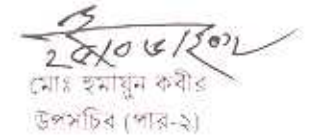 মোঃ হুমায়ুন কবীর
উপসচিব (পার-২)